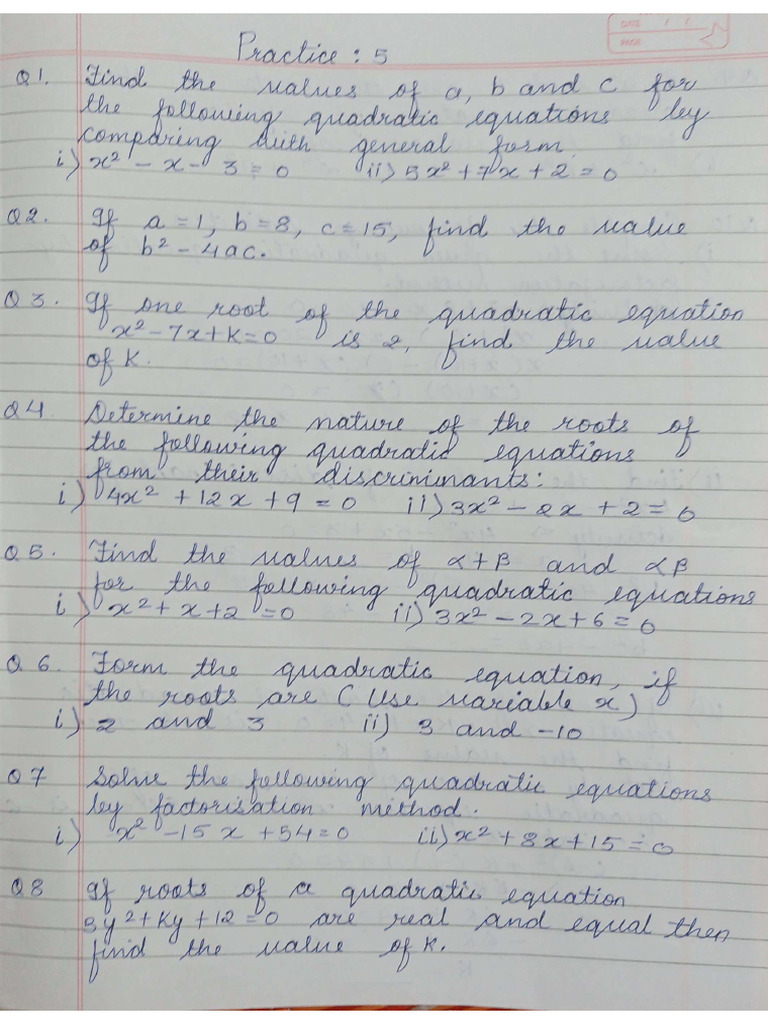 DATE / /
PAGE
Practice : 5
Q1. Find the values of a, b and c for
the following quadratic equations by
comparing with general form.
i) x² - x - 3 = 0 ii) 5x² + 7x + 2 = 0
Q2. If a = 1, b = 8, c = 15, find the value
of b² - 4ac.
Q3. If one root of the quadratic equation
x² - 7x + k = 0 is 2, find the value
of k.
Q4 Determine the nature of the roots of
the following quadratic equations
from their discriminants:
i) 4x² + 12x + 9 = 0 ii) 3x² - 2x + 2 = 0
Q5. Find the values of α+β and αβ
for the following quadratic equations
i) x² + x + 2 = 0 ii) 3x² - 2x + 6 = 0
Q6. Form the quadratic equation, if
the roots are (Use variable x)
i) 2 and 3 ii) 3 and -10
Q7 Solve the following quadratic equations
by factorisation method.
i) x² - 15x + 54 = 0 ii) x² + 8x + 15 = 0
Q8 If roots of a quadratic equation
3y² + ky + 12 = 0 are real and equal then
find the value of k.